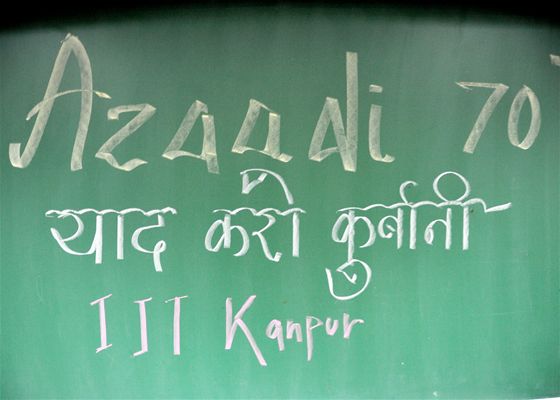 Azaadi 70
याद करो कुर्बानी
IIT Kanpur